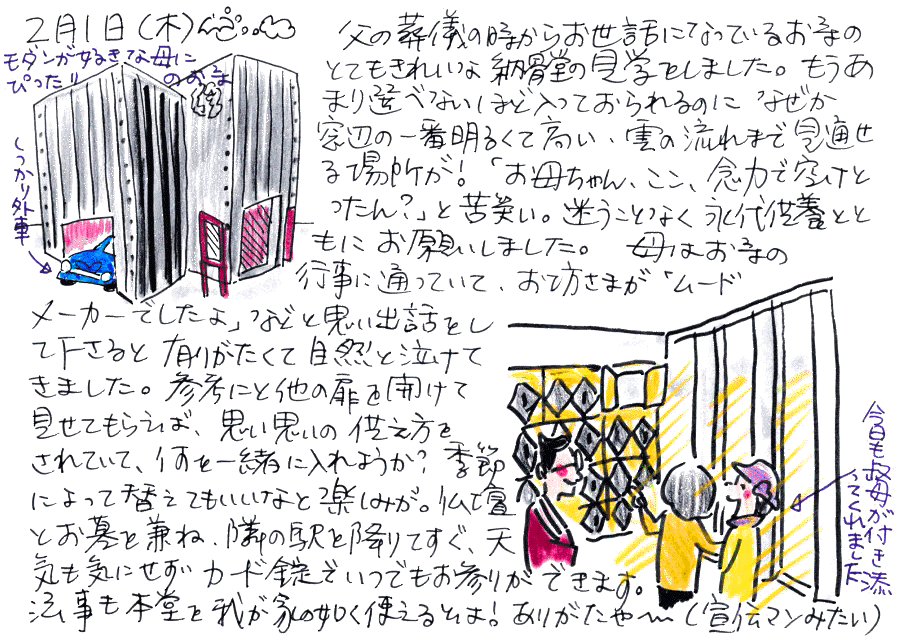 2月1日(木)
モダンが好きな母に
ぴった!! のお寺
しっかり外車
父の葬儀の時からお世話になっているお寺の
とてもきれいな納骨堂の見学をしました。もうあ
まり選べないほど入っておられるのに なぜか
窓辺の一番明るくて高い、雲の流れまで見通せ
る場所が!「お母ちゃん、ここ、念力で空けと
ったん?」と苦笑い。迷うことなく永代供養とと
もにお願いしました。 母はお寺の
行事に通っていて、お坊さまが「ムード
メーカーでしたよ」などと思い出話をし
て下さると 有りがたくて自然と泣けて
きました。参考にと他の扉を開けて
見せてもらえば、思い思いの供え方を
されていて、何を一緒に入れようか?季節
によって替えてもいいなと楽しみが。仏壇
とお墓を兼ね、隣の駅を降りてすぐ、天
気も気にせず カード錠でいつでもお参りが できます。
法事も本堂を我が家の如く使えるとは!ありがたや〜(宣伝マンみたい)
今日も叔母が付き添
ってくれました